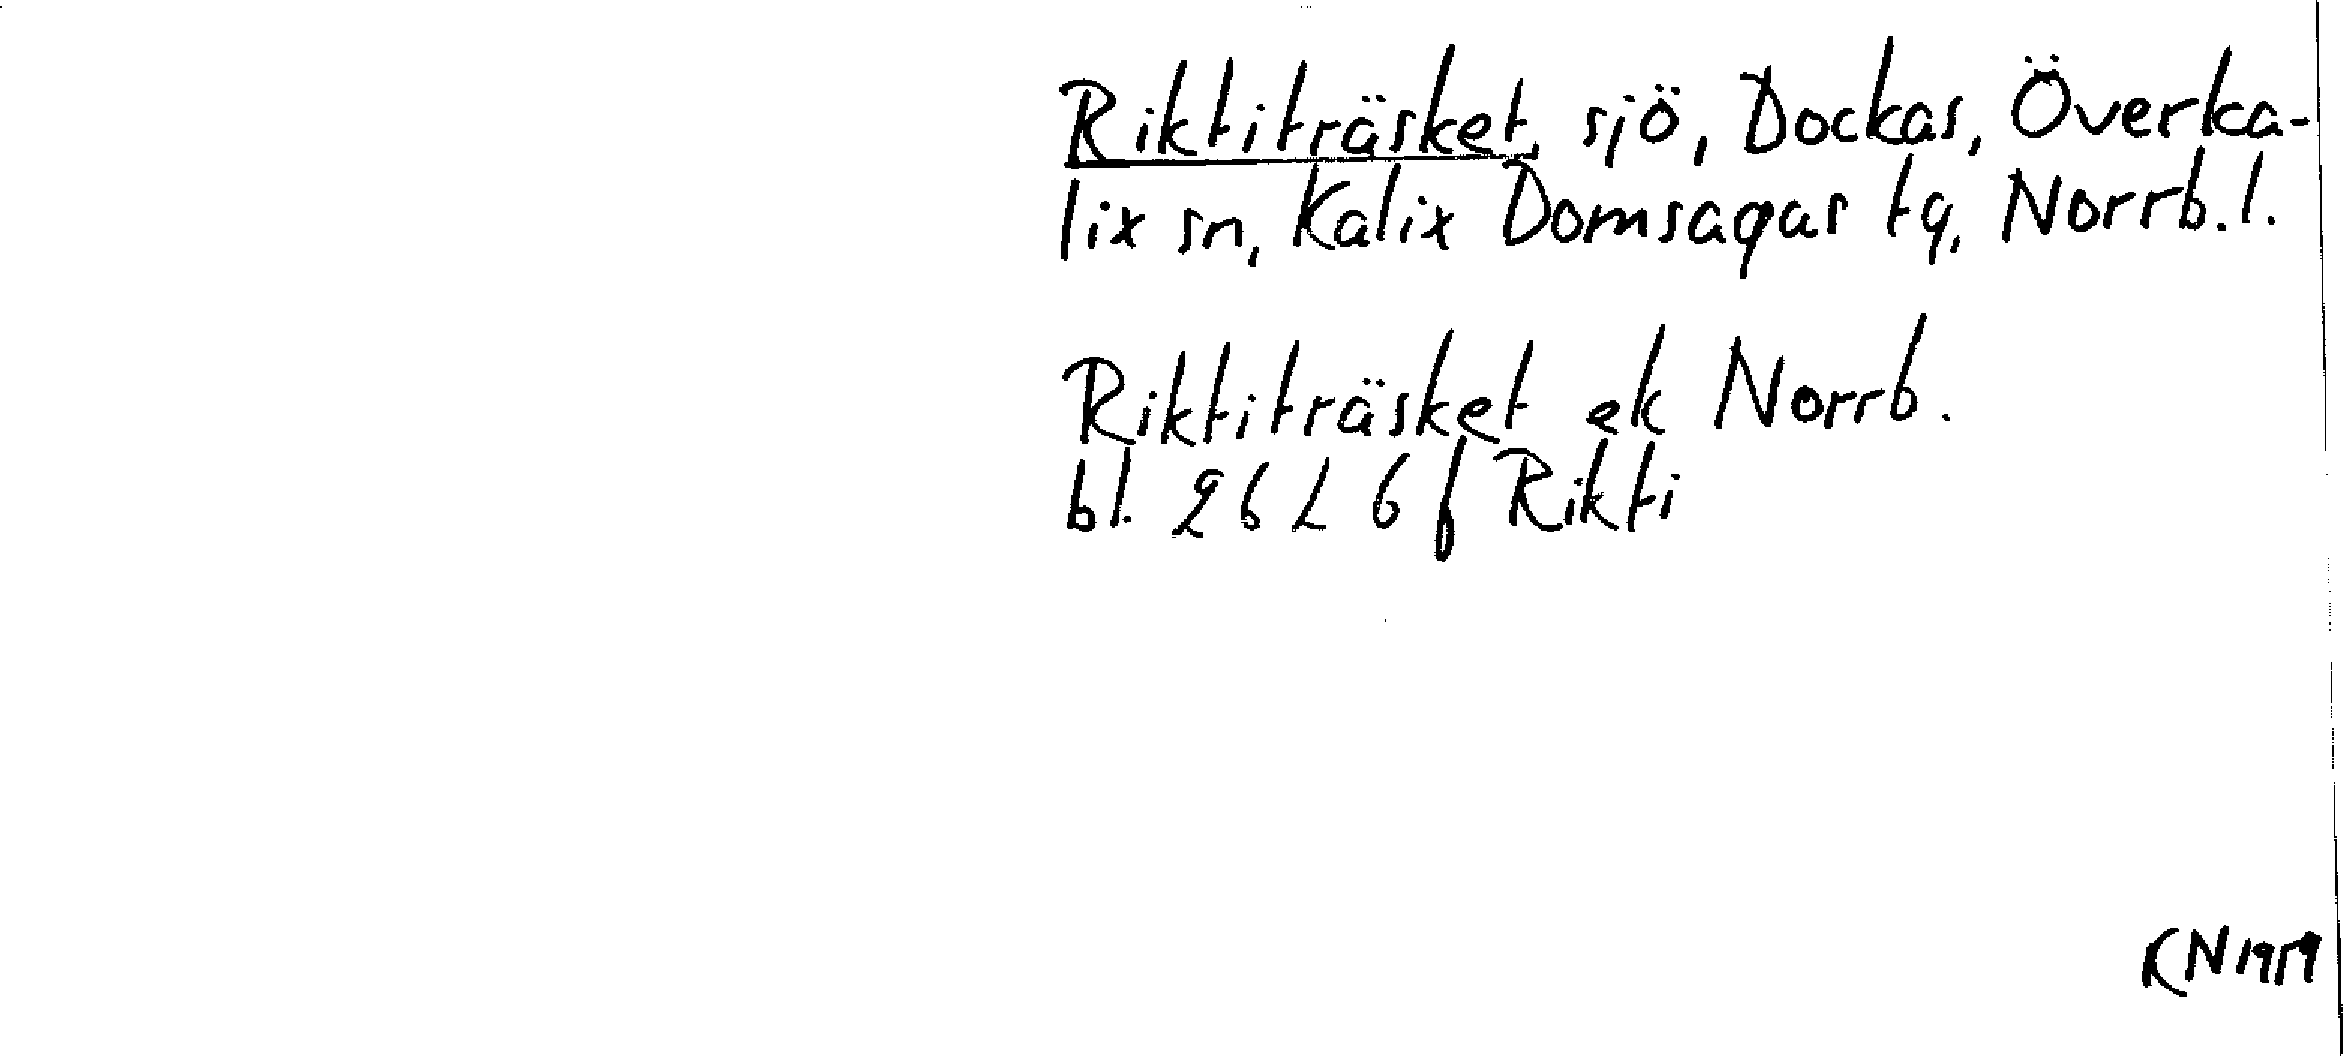 Riktiträsket, sjö, Dockas, Överka-
lix sn, Kalix Domsagas tg, Norrb. l.
Riktiträsket ek Norrb.
bl. 26 L 6 f Rikti
KN 1959